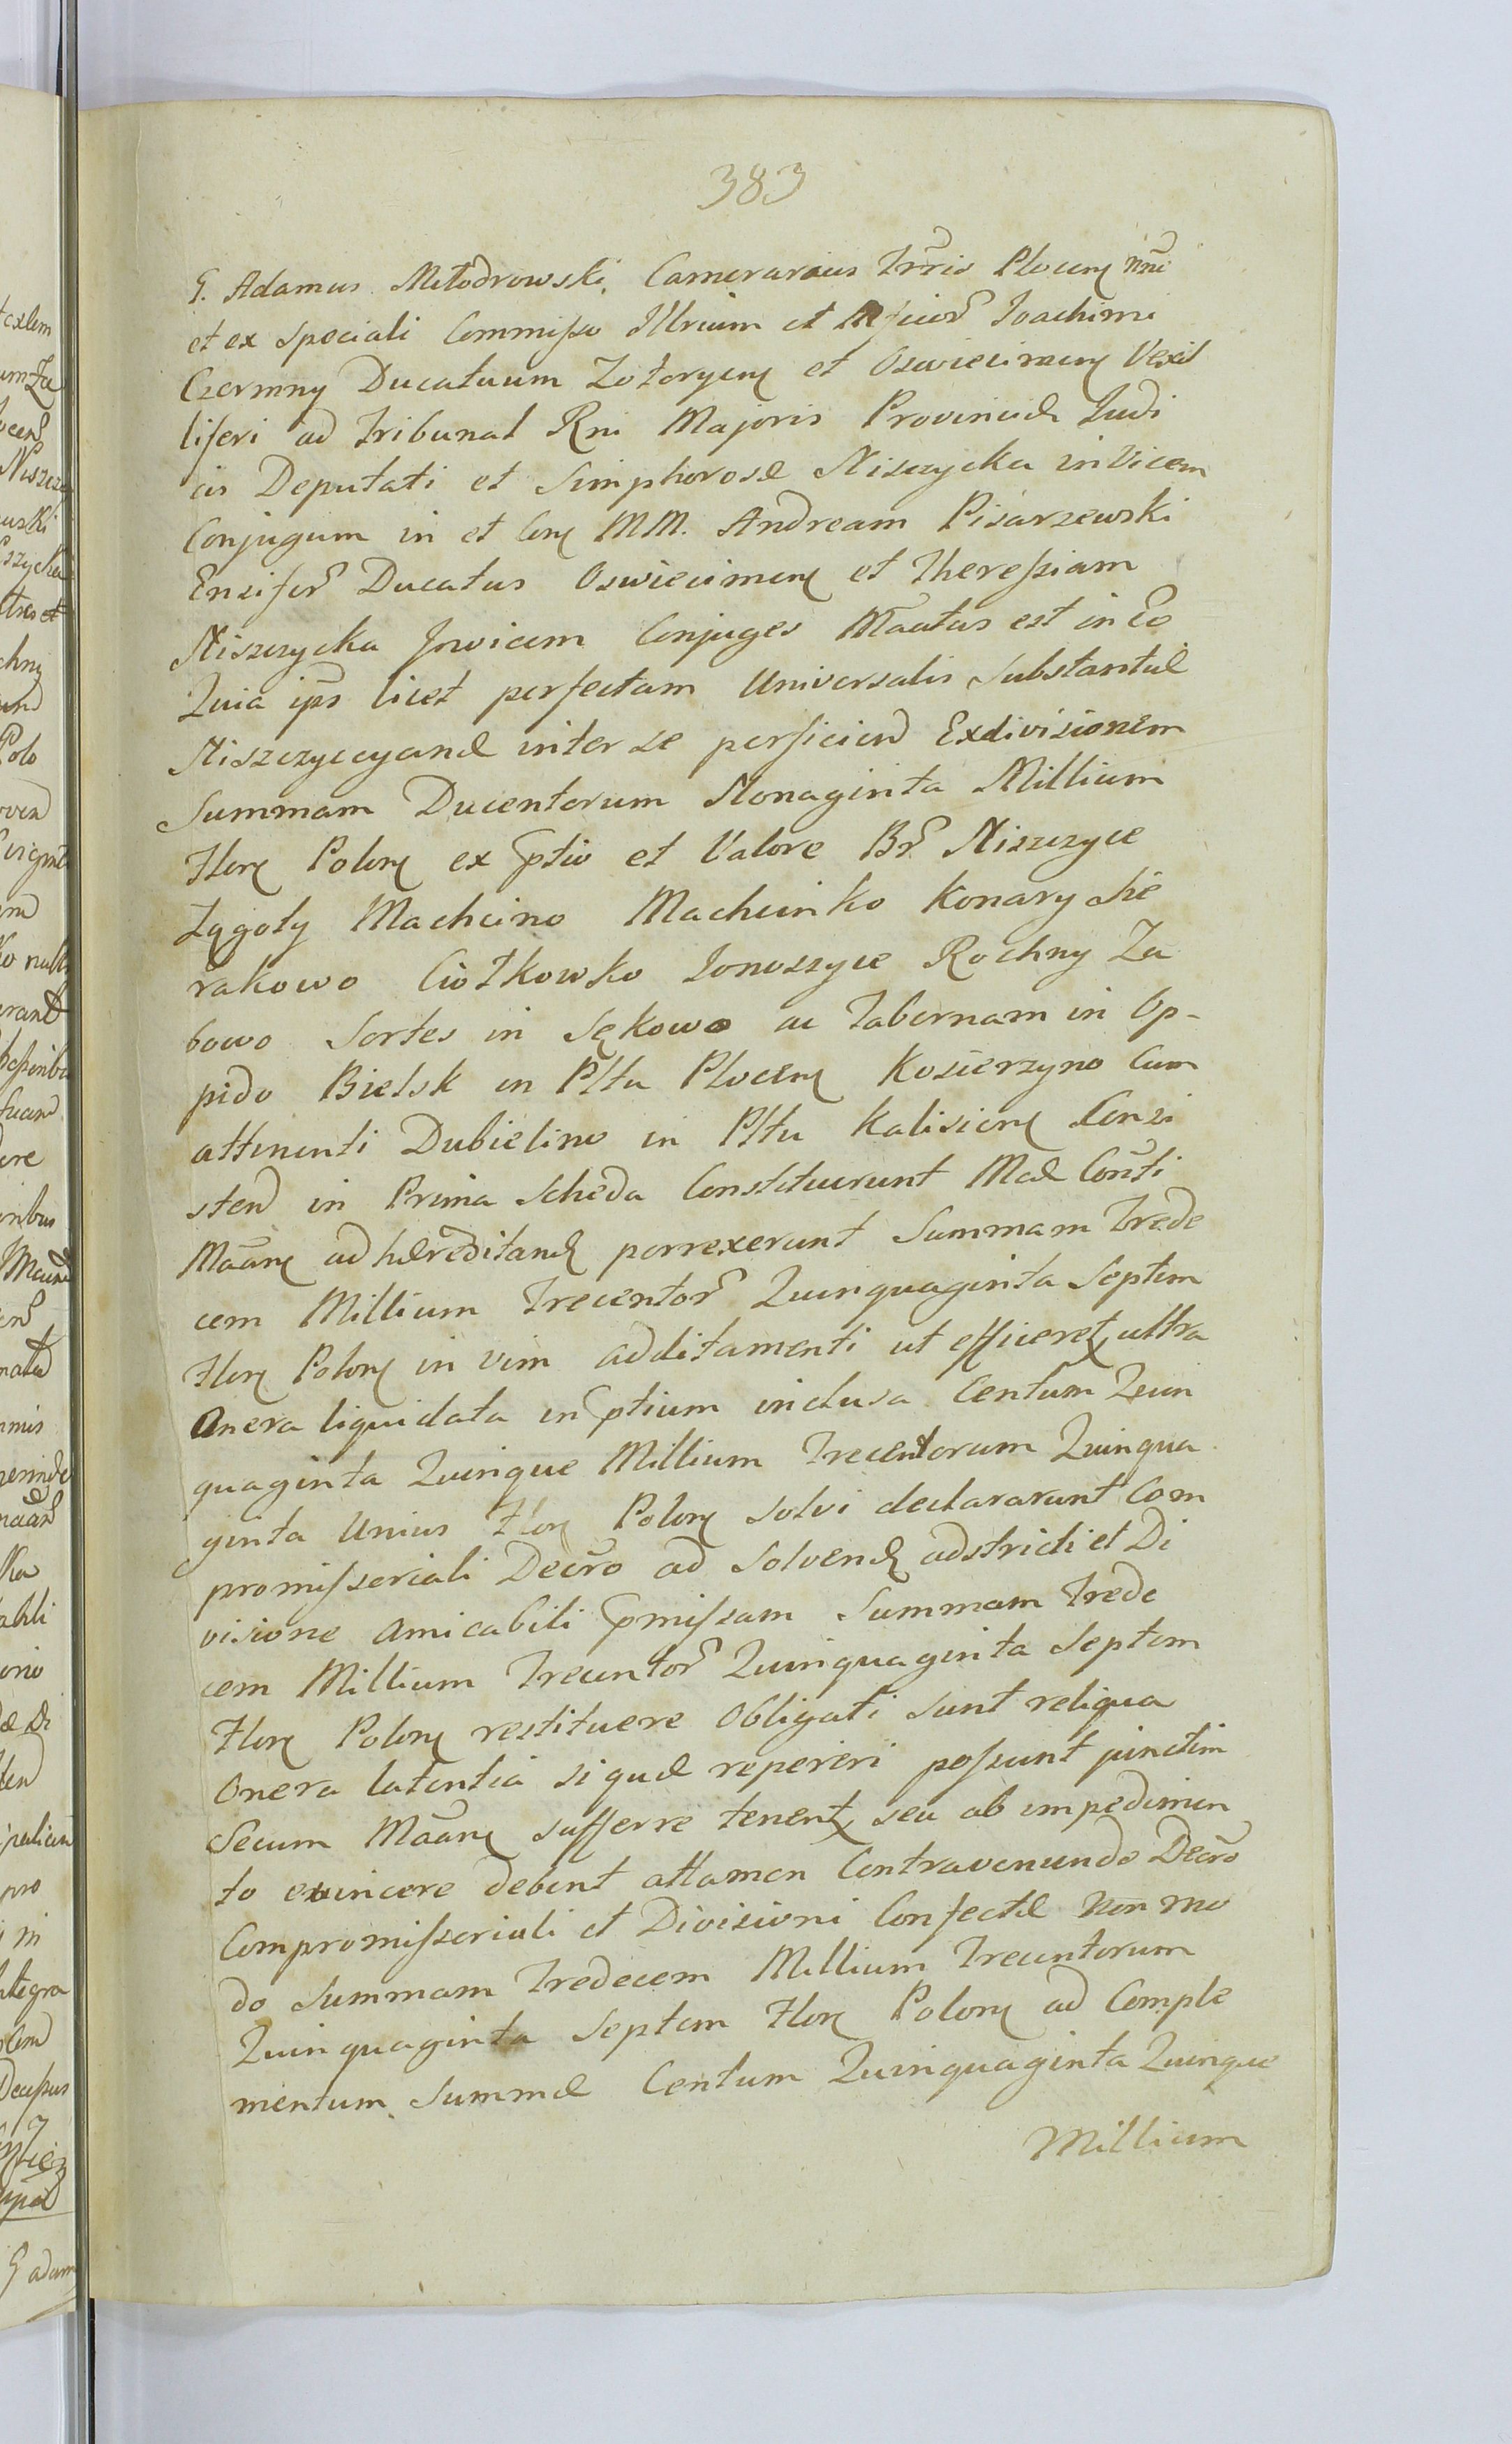 383
G. Adamus Młodrowski, Camerarius Trris Plocen nni
et ex speciali Commisso Illrium et Mficor Joachimi
Czermny Ducatuum Zotoryen et Oswiecimen Vexil
liferi ad Tribunal Rni Majoris Provinciæ Judi
cis Deputati et Simphorosæ Niszczycka in Vicem
Conjugum in et Con MM. Andream Pisarzewski
Ensifer Ducatus Oswiecimen et Theressiam
Niszczycka Invicem Conjuges Maatus est in Eo
Quia ips licet perfectam Universalis Substantiæ
Niszczycyanæ inter se perficiend Exdivisionem
Summam Ducentorum Nonaginta Millium
Flor Polon ex ptio et Valore Br Niszczyce
Łągoty Machcino Machcinko Konary Sie
rakowo Ciołkowko Jonoszyce Rochny Za
bowo Sortes in Sękowo ac Tabernam in Op-
pido Bielsk in Pttu Plocen Kosierzyno Cum
attinenti Dubielino in Pttu Kalisien Consi
sten in Prima Scheda Constituerunt Mæ Conti
Maan ad hæreditand porrexerunt Summam Trede
cem Millium Trecentor Quinquaginta Septem
Flor Polon in vim additamenti ut efficeret ultra
Onera liquidata in ptium inclusa Centum Quin
quaginta Quinque Millium Trecentorum Quinqua
ginta Unius Flor Polon solvi declararunt Com
promissoriali Decro ad Solvend adstricti et Di
visione Amicabili pmissam Summam Trede
cem Millium Trecentor Quinquaginta Septem
Flor Polon restituere Obligati sunt reliqua
Onera latentia si quæ reperiri possunt junctim
Secum Maan sufferre tenent seu ab impedimen
to evincere debent attamen Contraveniendo Decro
Compromissoriali et Divisioni Confectæ Non mo
do Summam Tredecem Millium Trecentorum
Quinquaginta Septem Flor Polon ad Comple
mentum Summæ Centum Quinquaginta Quinque
Millium